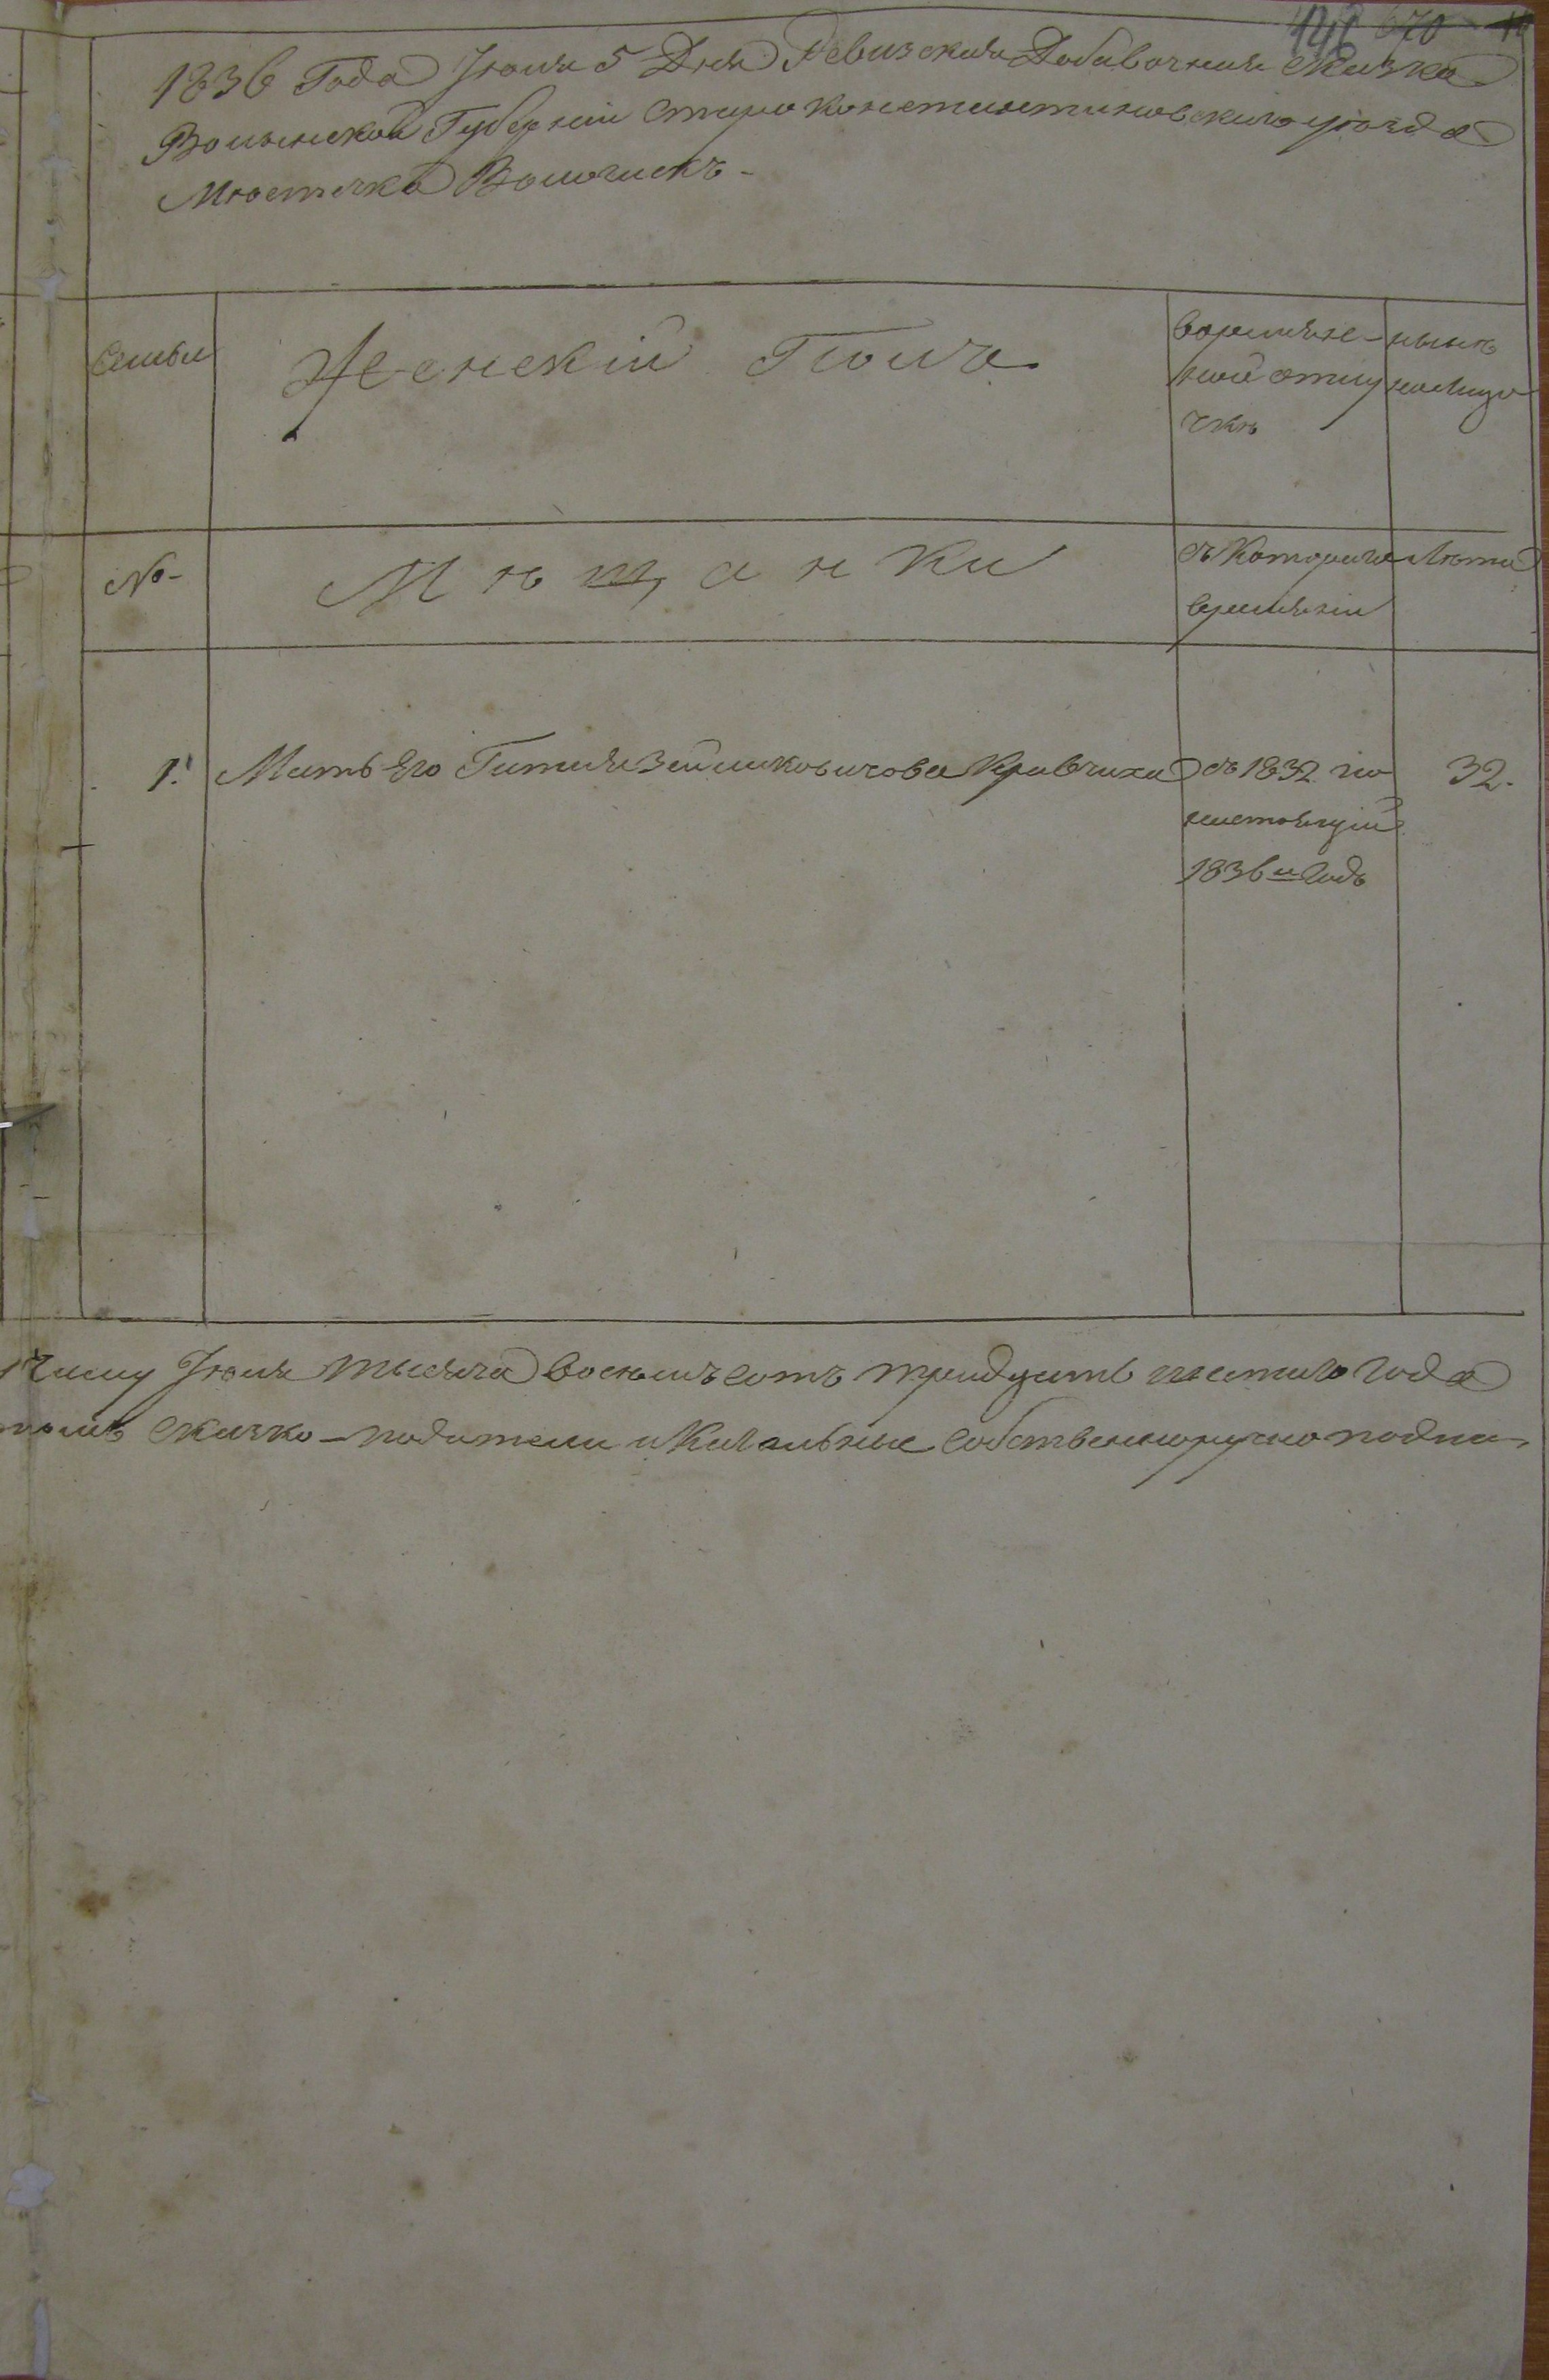 670
1836 Года Июля 5 Дня Ревизская Добавочная Сказка
Волынской Губернiи Старо Константиновского уѣзда
Мѣстечка Волочискъ -
Семьи
Женскiй Полъ
Во временной отлучкѣ
нынѣ на лицо
№
Мѣщанки
съ Которого времянiи
Лѣта
1.
Мать Его Гитля Зейликовичова Кравчиха
съ 1832 по
настоящiй
1836й Годъ
32.
Июля тысяча восемь сотъ тридцать шестого Года
сказко-податели и Кагальные собственноручно подпи-